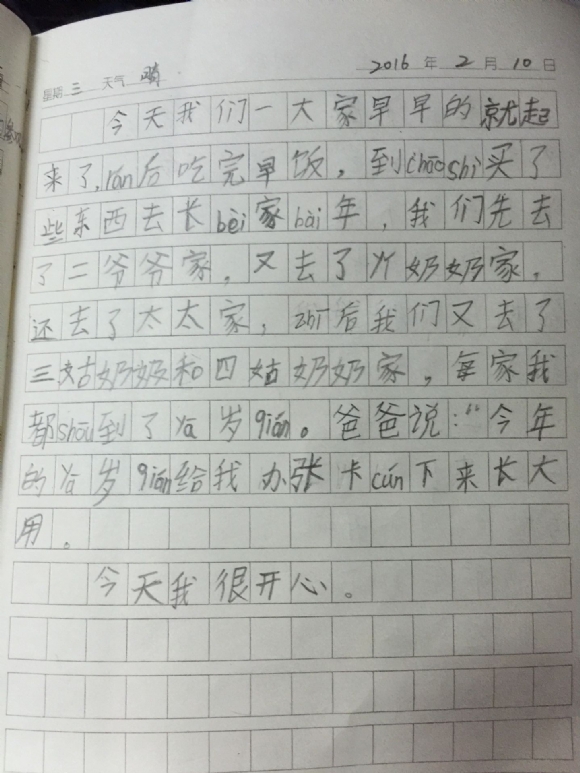 星期 三 天气 晴 2016 年 2 月 10 日
今天我们一大家早早的就起
来了,rán后吃完早饭，到chāoshì买了
些东西去长bèi家bài年，我们先去
了二爷爷家，又去了丫奶奶家，
还去了太太家，zhī后我们又去了
三姑奶奶和四姑奶奶家，每家我
都shōu到了ya岁qián。爸爸说：“今年
的ya岁qián给我办张卡cún下来长大
用。
今天我很开心。